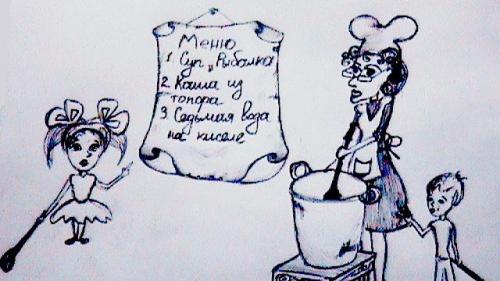 Меню
1. Суп „Рыбалка"
2. Каша из
топора
3. Седьмая вода
на киселе